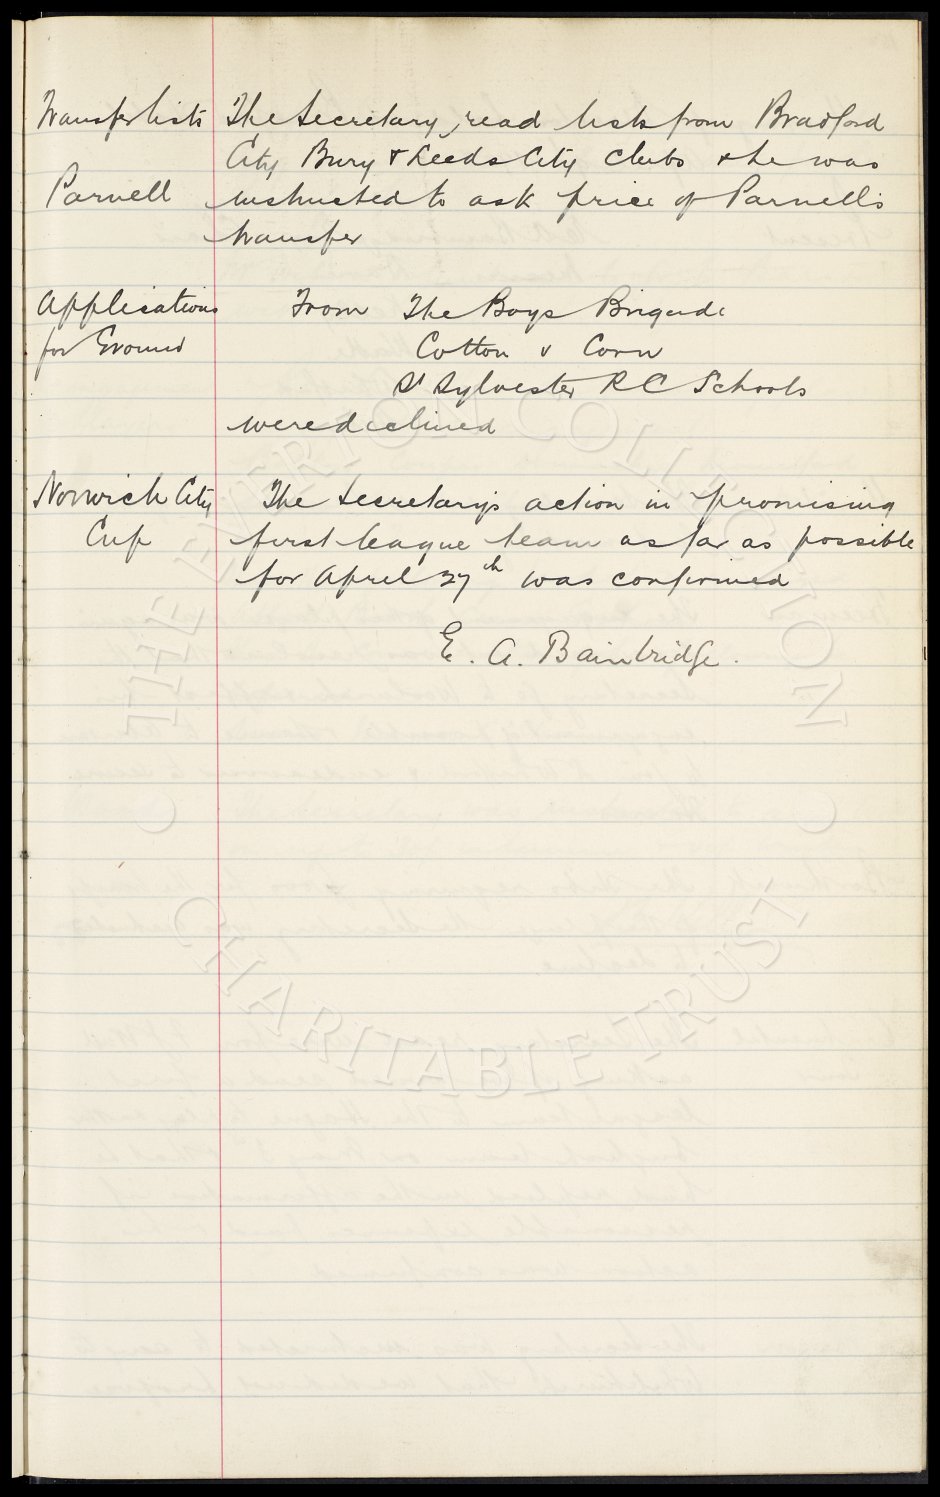 Transfer lists The Secretary, read lists from Bradford
City Bury & Leeds City Clubs & he was
Parnell instructed to ask price of Parnell's
transfer
Applications From The Boys Brigade
for Ground Cotton & Corn
St Sylvester R C Schools
were declined
Norwich City The Secretary's action in promising
Cup first league team as far as possible
for April 27th was confirmed
E. A. Bainbridge.
© THE EVERTON COLLECTION ©
CHARITABLE TRUST